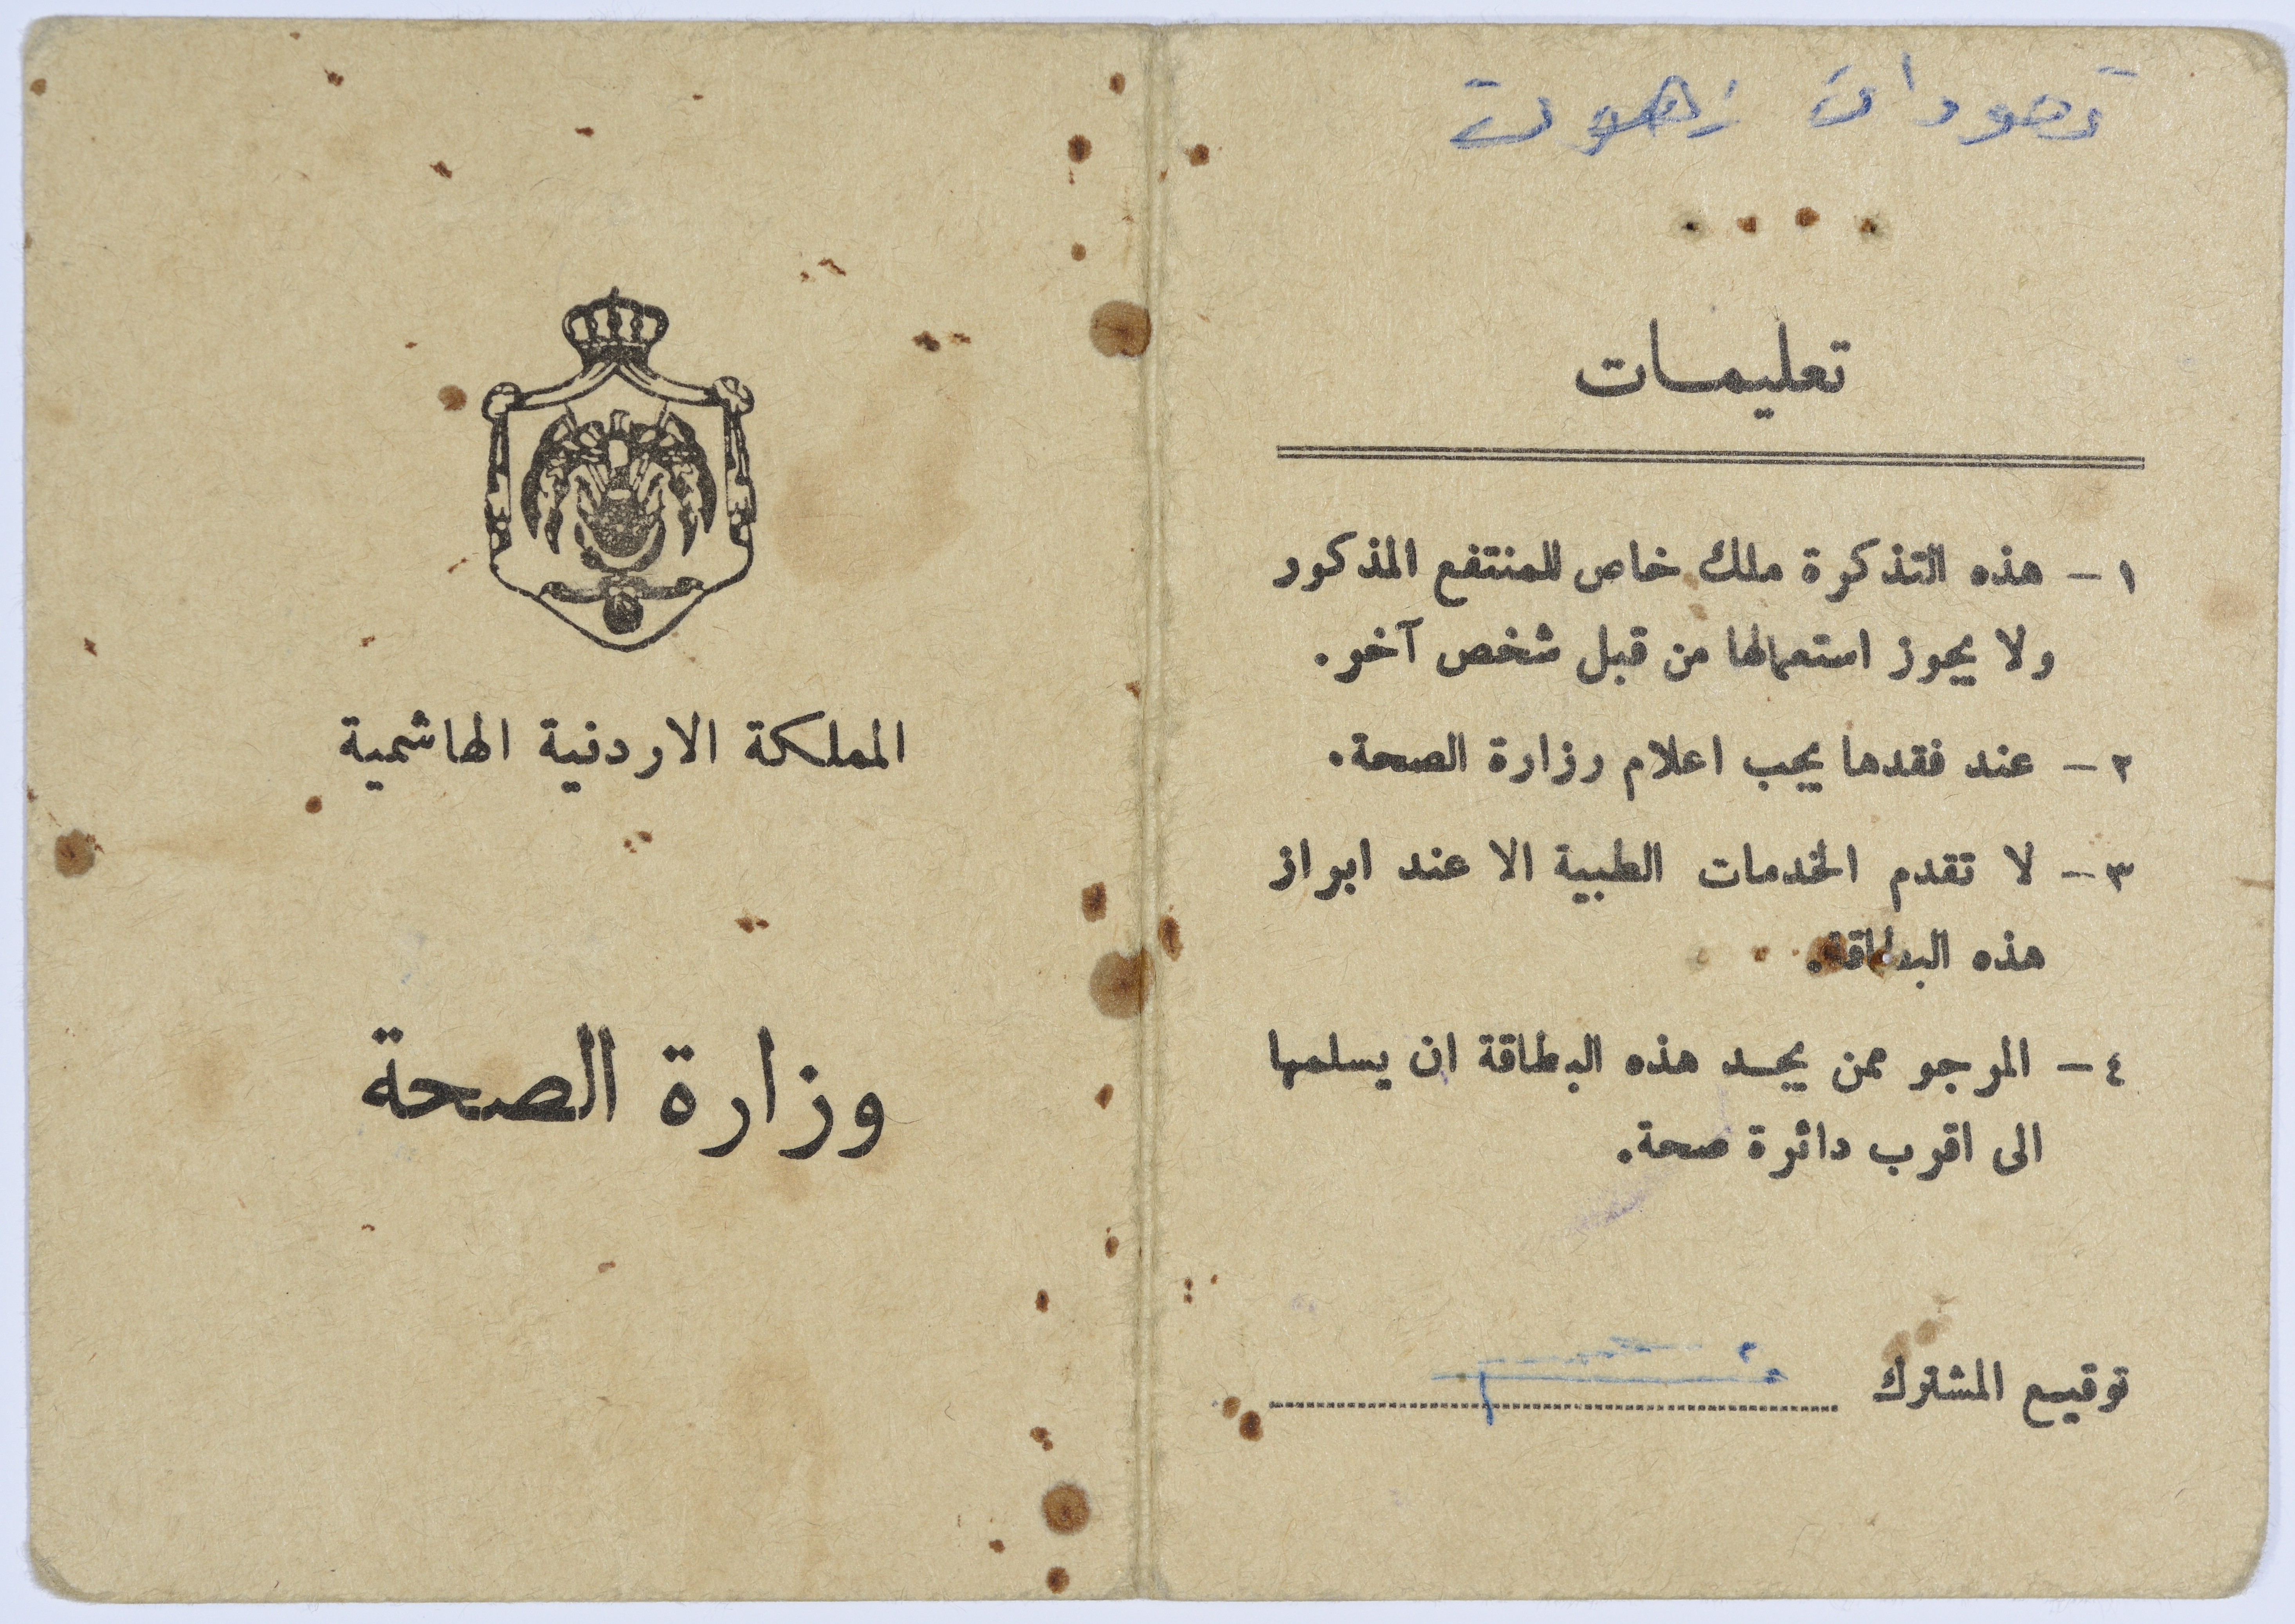 تعليمات
١ - هذه التذكرة ملك خاص للمنتفع المذكور
ولا يجوز استعمالها من قبل شخص آخر.
٢ - عند فقدها يجب اعلام رزارة الصحة.
٣ - لا تقدم الخدمات الطبية الا عند ابراز
هذه البطاقة.
٤ - المرجو ممن يجد هذه البطاقة ان يسلمها
الى اقرب دائرة صحة.
توقيع المشترك
المملكة الاردنية الهاشمية
وزارة الصحة